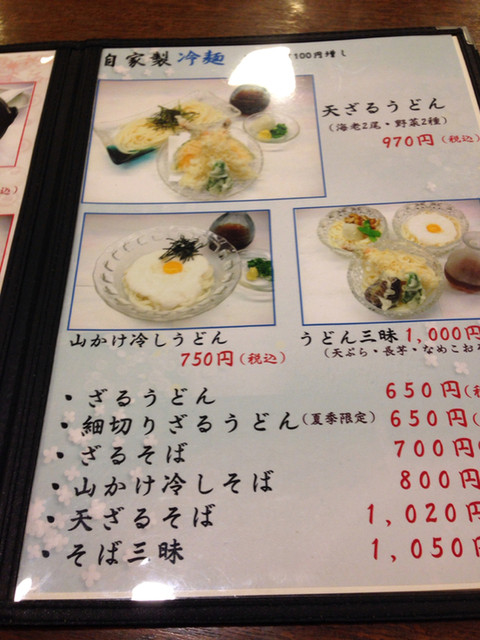 自家製冷麺
100円増し
天ざるうどん
(海老2尾・野菜2種)
970円(税込)
山かけ冷しうどん
750円(税込)
うどん三昧 1,000円
(天ぷら・長芋・なめこおろ
・ざるうどん 650円(税
・細切りざるうどん(夏季限定) 650円(
・ざるそば 700円
・山かけ冷しそば 800円
・天ざるそば 1,020円
・そば三昧 1,050円
込)